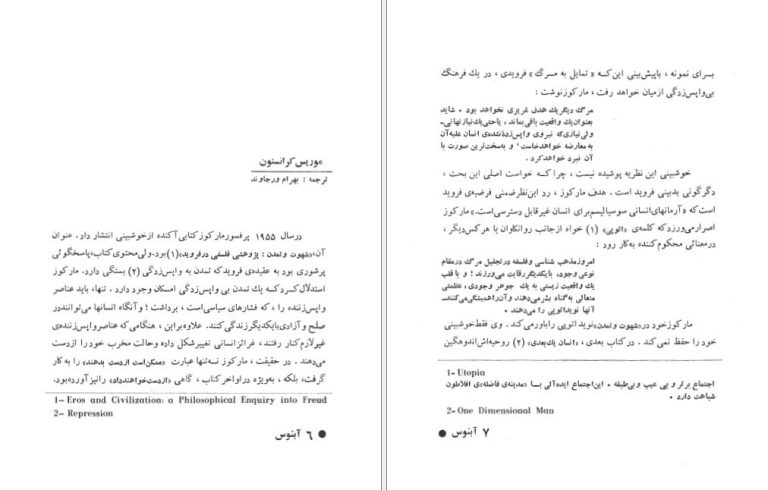 موریس کرانستون
ترجمه : بهرام ورجاوند
درسال ۱۹۵۵ پرفسور مارکوز کتابی آکنده از خوشبینی انتشار داد. عنوان
آن، «شهوت و تمدن : پژوهشی فلسفی در فروید» (۱) بود. ولی محتوی کتاب، پاسخگوئی
پرشوری بود به عقیده‌ی فروید که تمدن به واپس‌زدگی (۲) بستگی دارد. مارکوز
استدلال کرد که یك تمدن بی واپس‌زدگی امکان وجود دارد . تنها، باید عناصر
واپس‌زننده را ، که فشارهای سیاسی است ، برداشت ؛ و آنگاه انسانها می‌توانند در
صلح و آزادی بایکدیگر زندگی کنند. علاوه براین ، هنگامی که عناصر واپس‌زننده‌ی
غیرلازم کنار رفتند ، غرائز انسانی تغییر شکل داده و حالت مخرب خود را از دست
می‌دهند . در حقیقت ، مارکوز نه‌تنها عبارت «ممکن است از دست بدهند» را به کار
گرفت، بلکه ، به‌ویژه در اواخر کتاب ، گاهی «از دست خواهند داد» را نیز آورده بود.
1- Eros and Civilization: a Philosophical Enquiry into Freud
2- Repression
● ۶ آبنوس
بـرای نمونه ، باپیش‌بینی این که « تمایل به مـرگ » فرویدی ، در یك فرهنگ
بی‌واپس‌زدگی از میان خواهد رفت ، مارکوز نوشت :
مرگ دیگر یك هدف غریزی نخواهد بود . شاید
بعنوان یك واقعیت باقی بماند ، یاحتی یك نیاز نهائی ـ
ولی نیازی که نیروی واپس‌زده‌نشده‌ی انسان علیه آن
به معارضه خواهد خاست ؛ و به‌سخت‌ترین صورت با
آن نبرد خواهد کرد .
خوشبینی این نظریه پوشیده نیست ، چرا که خواست اصلی این بحث ،
دگرگونی بدبینی فروید است . هدف مارکوز ، رد این نظر ضمنی فرضیه‌ی فروید
است که « آرمانهای انسانی سوسیالیسم برای انسان غیرقابل دسترسی است.» مارکوز
اصرار می‌ورزد که کلمه‌ی «اتوپی» (۱) خواه از جانب روانکاوان یا هر کس دیگر ،
در معنائی محکوم کننده به کار رود :
امروز مذهب شناسی و فلسفه در تجلیل مرگ در مقام
نوعی وجود، بایکدیگر رقابت می‌ورزند ؛ و با قلب
یك واقعیت زیستی به یك جوهر وجودی ، عظمتی
متعالی به گناه بشر می‌دهند و آن را همیشگی می‌کنند...
آنها نوید اتوپی را می‌دهند .
مارکوز خود در «شهوت و تمدن» نوید اتوپی را باور می‌کند . وی فقط خوشبینی
خود را حفظ نمی‌کند . در کتاب بعدی ، «انسان یك بعدی» (۲) روحیه‌اش اندوهگین
1- Utopia
اجتماع برتر و بی عیب و بی‌طبقه . این اجتماع ایده‌آلی بـا «مدینه‌ی فاضله»ی افلاطون
شباهت دارد .
2- One Dimensional Man
۷ آبنوس ●